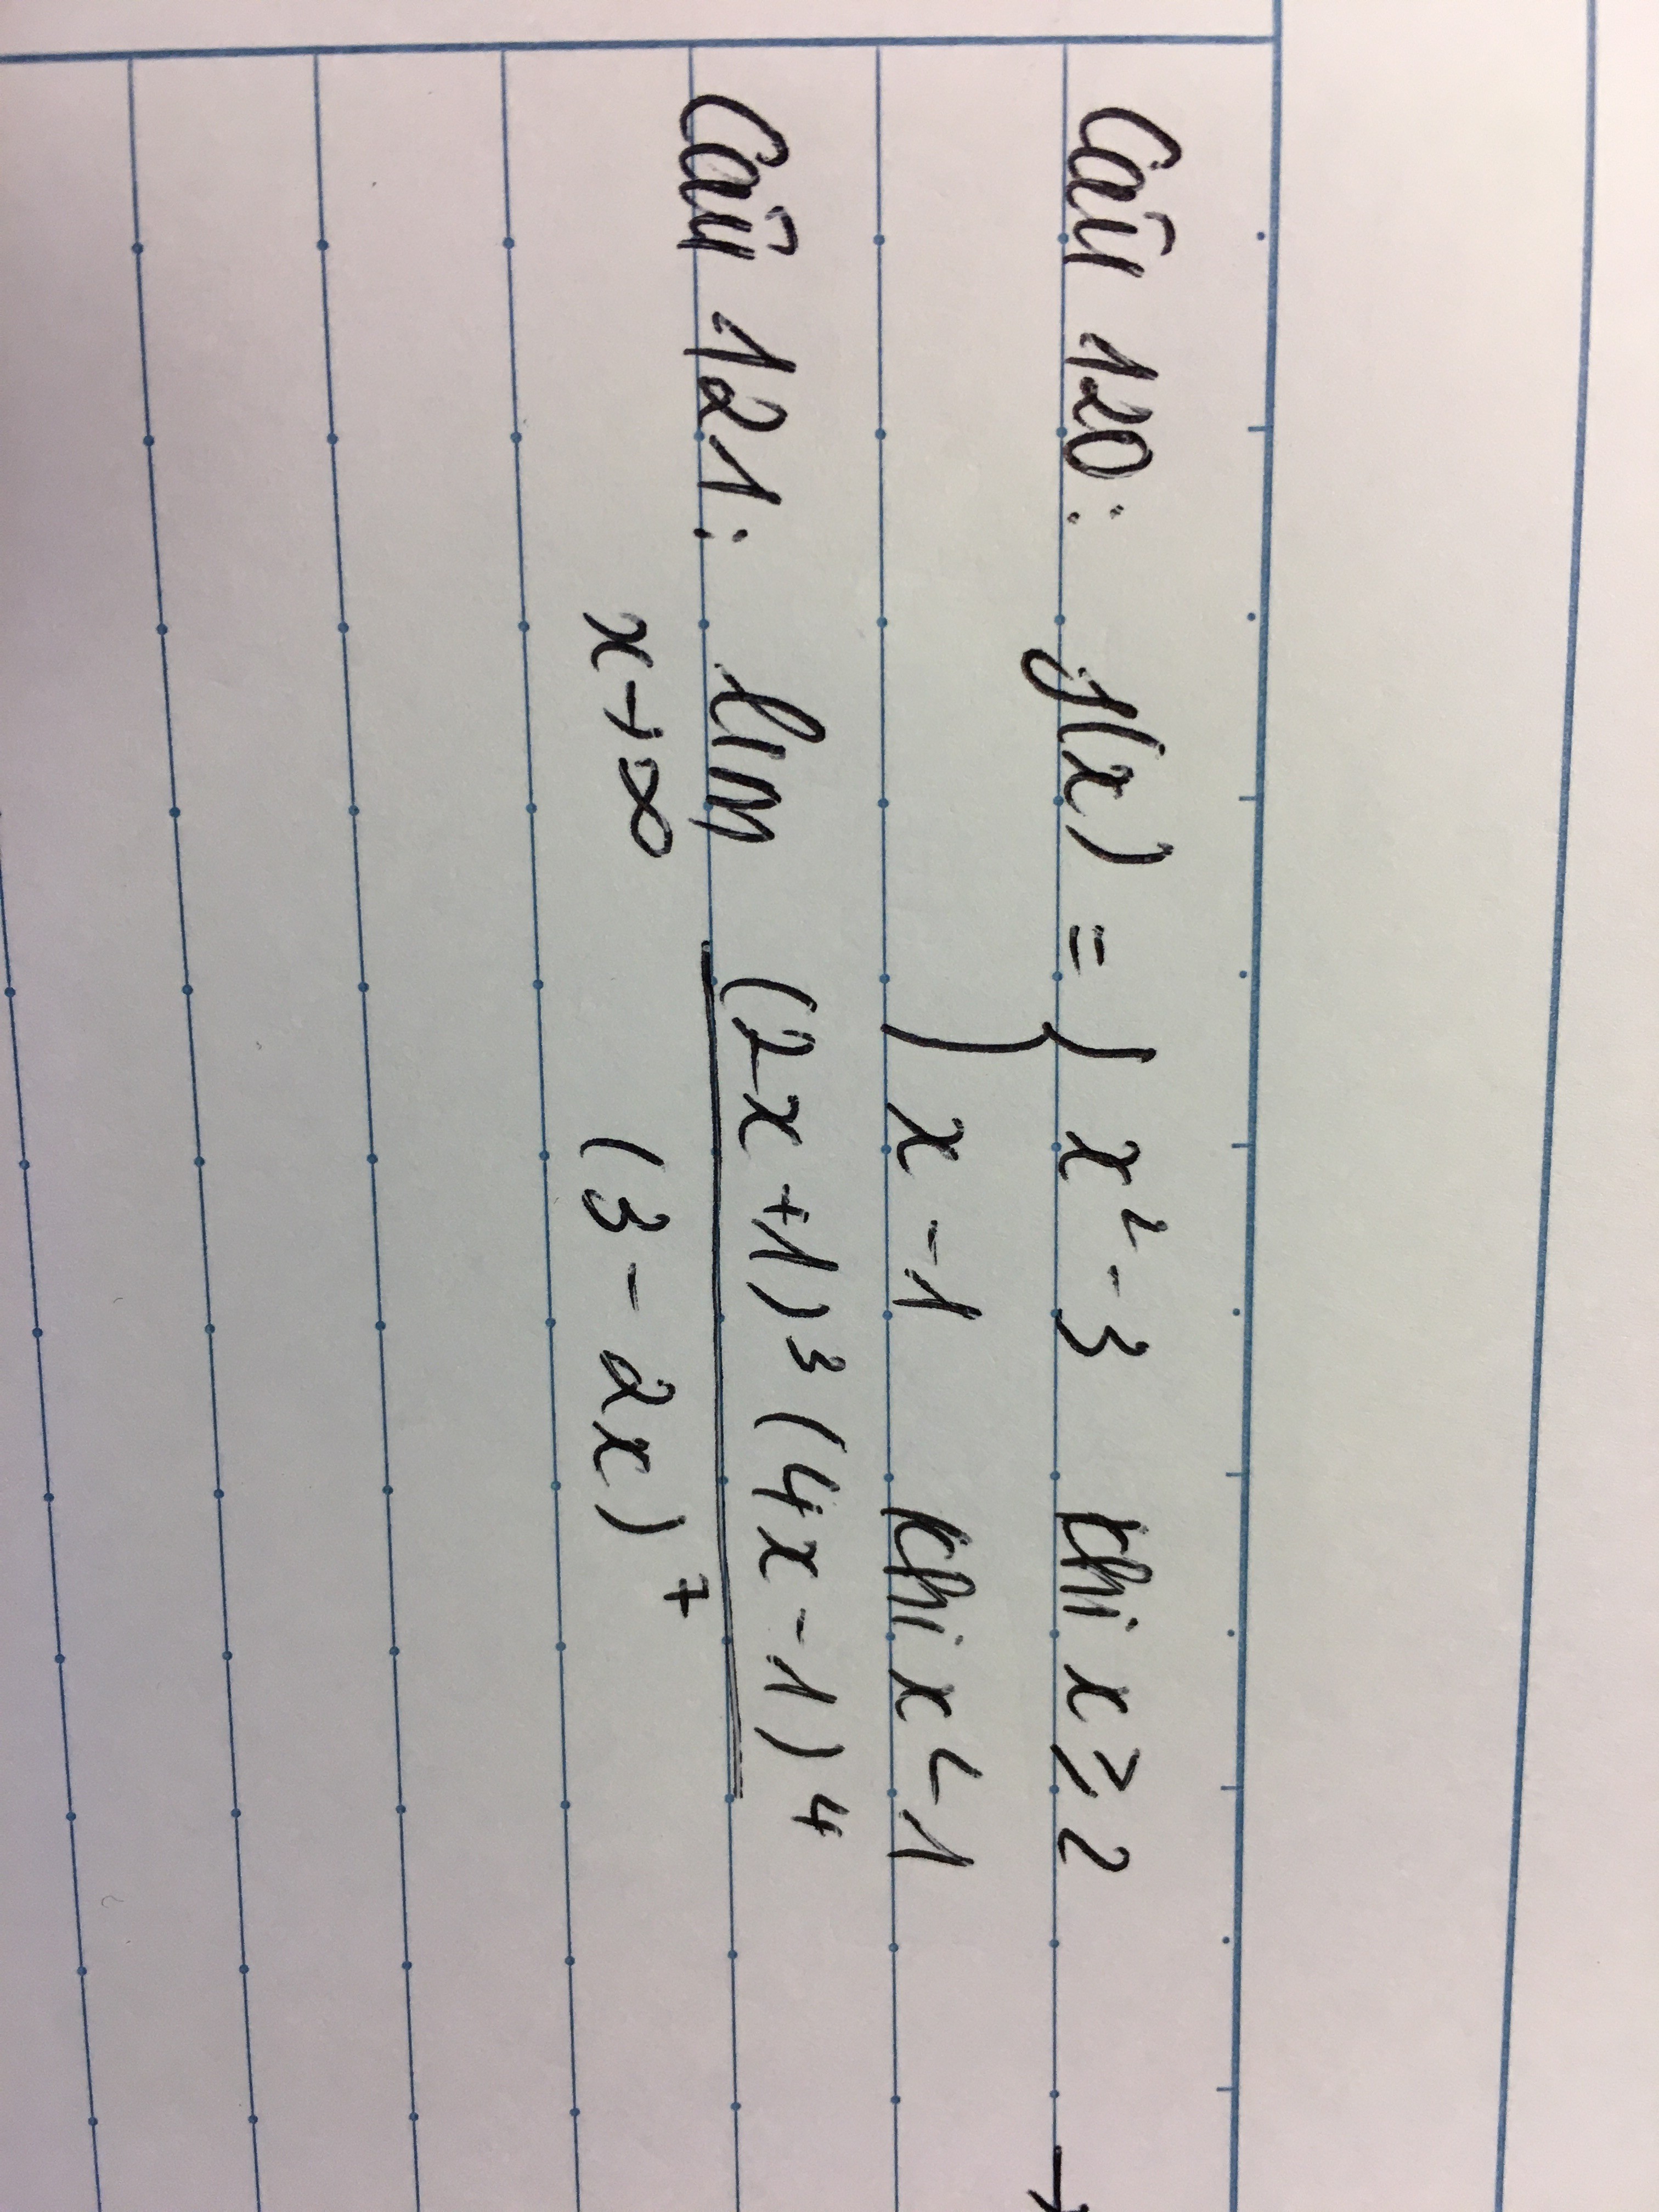 Câu 120: f(x) = { x² - 3 khi x ≥ 2
x - 1 khi x < 1
Câu 121: lim (2x + 1)³ (4x - 1)⁴
x → ∞ (3 - 2x)⁷